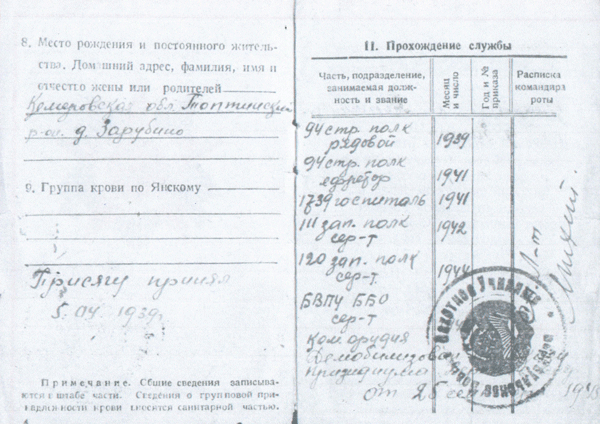 8. Место рождения и постоянного житель-
ства. Домашний адрес, фамилия, имя и
отчество жены или родителей
Кемеровская обл. Топкинский
р-он. д. Зарубино
9. Группа крови по Янскому
Присягу принял
5. 1939г.
Примечание. Общие сведения записываю-
тся в штабе части. Сведения о групповой при-
надлежности крови вносятся санитарной частью.
II. Прохождение службы
Часть, подразделение, занимаемая долж-
ность и звание
Месяц и число
Год и № приказа
Расписка командира роты
94 стр. полк 1939
рядовой
94 стр. полк 1941
ефрейтор
1739 госпиталь 1941
111 зап. полк 1942
сер-т
120 зап. полк 1944
сер-т
БВПУ ББО
сер-т
Ком. орудия
Демобилизован
Президиума
от 25 сен
л-т